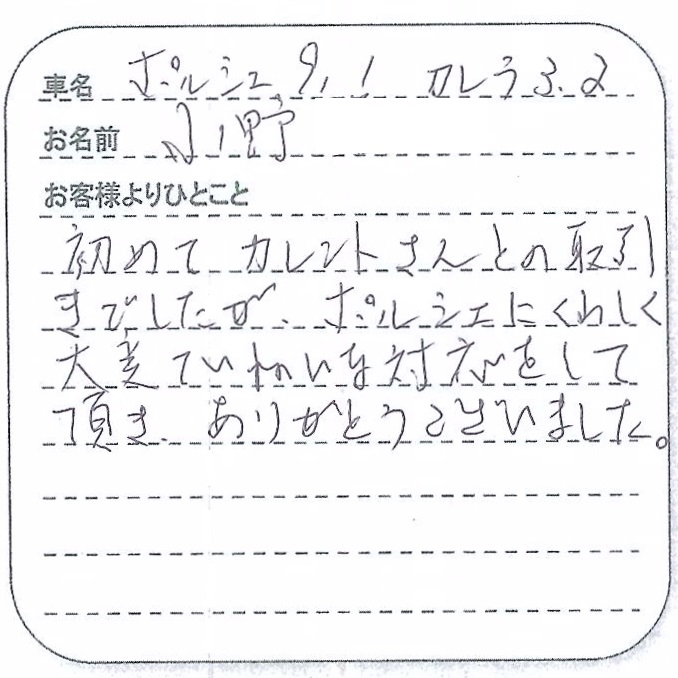 車名 ポルシェ911 カレラ3.2
お名前 小野
お客様よりひとこと
初めてカレントさんとの取引
きでしたが、ポルシェにくわしく
大変ていねいな対応をして
頂き、ありがとうございました。